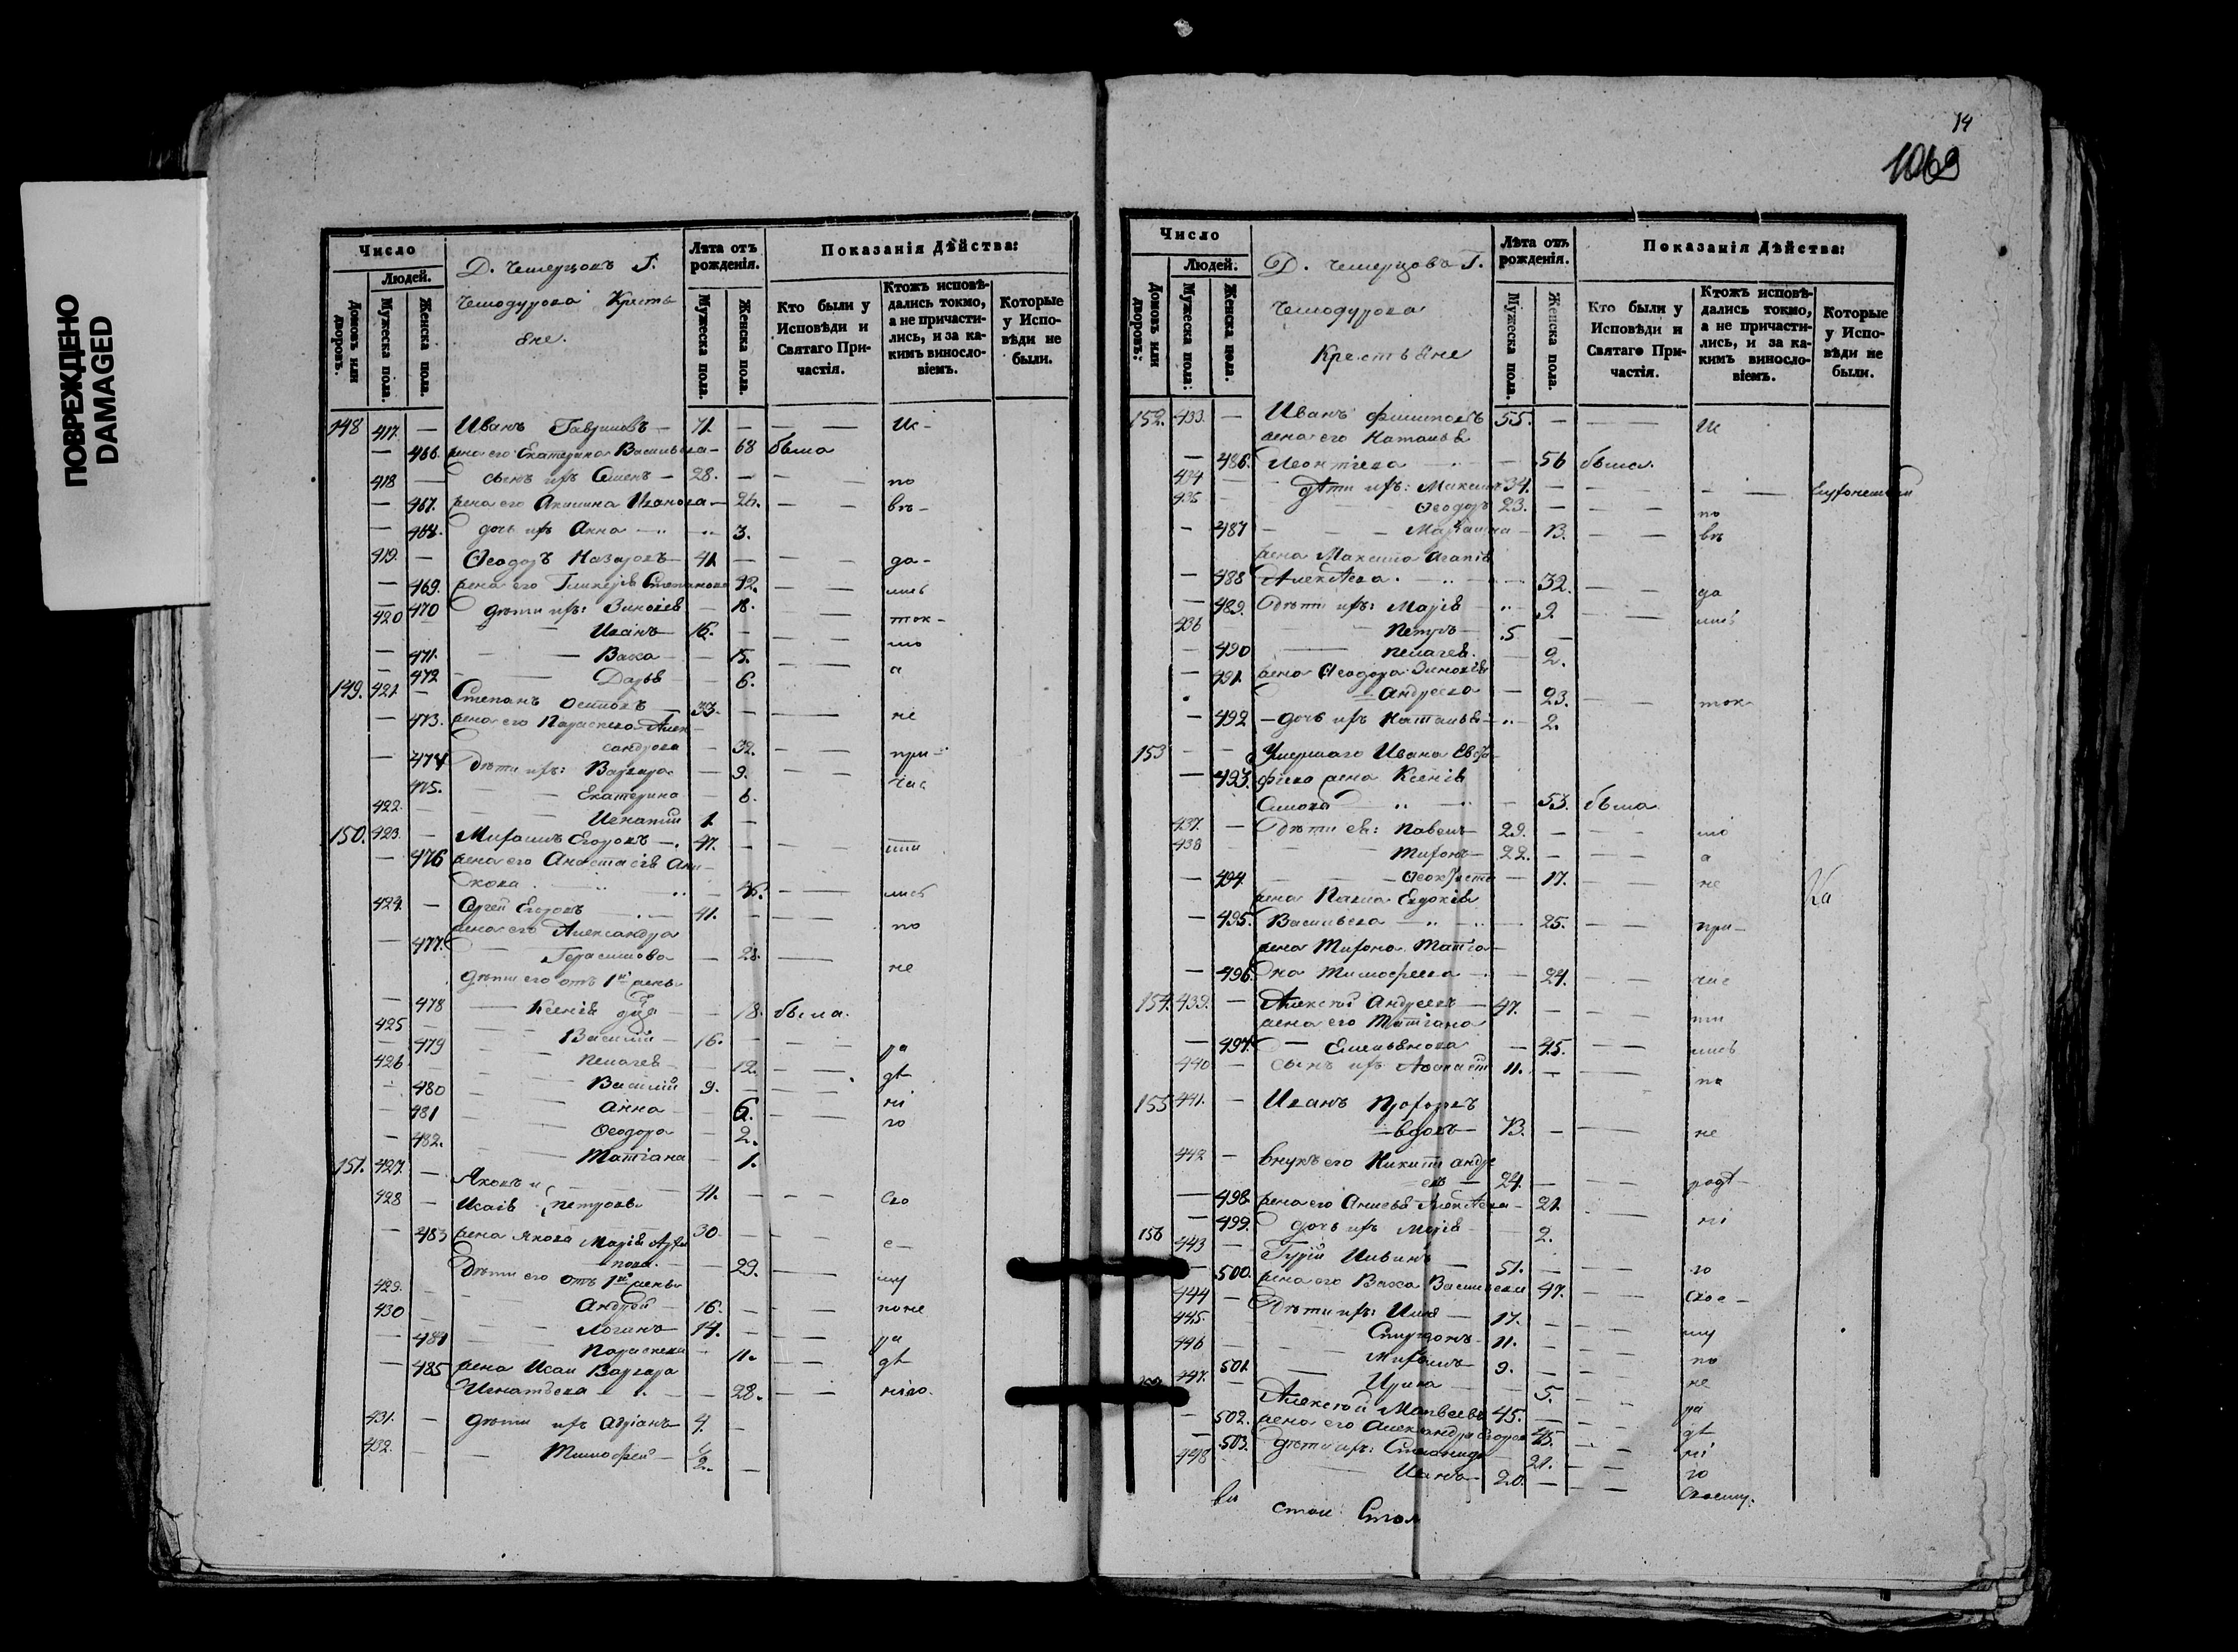 ПОВРЕЖДЕНО
DAMAGED
14
1069
Число
Людей.
Домовъ или дворовъ.
Мужеска пола.
Женска пола.
Д. Чемерцовъ Г.
Чемодурова Кресть
яне.
Лѣта отъ рожденія.
Мужеска пола.
Женска пола.
Показанія Дѣйства:
Кто были у Исповѣди и Святаго Причастія.
Ктожъ исповѣдались токмо, а не причастились, и за какимъ винословіемъ.
Которые у Исповѣди не были.
148 417. — Иванъ Гавриловъ — 71. — — — Ис-
— 466. жена его Екатерина Васильева — 68 была
418 — сынъ ихъ Семенъ — 28. — — по
— 467. жена его Акилина Иванова — 26. — — вѣ-
— 468. дочь ихъ Анна — 3.
419. — Ѳеодоръ Назаровъ — 41 — — — да-
— 469. жена его Гликерія Степанова 42. — — лись
— 470 дѣти ихъ: Зиновія — 18. — — ток-
420 Иванъ — 16. — — — мо
— 471. — — Васса — 15. — — а
— 472 — Дарья — 6.
149. 421. — Степанъ Осиповъ — 33. — — не
— 473. жена его Параскева Алек-
сандрова — 32. — — при-
— 474 Дѣти ихъ: Варвара — 9. — — час
475. — — Екатерина — 6.
422. — — Игнатій 1. —
150. 423. — Миронъ Егоровъ — 47. — — — ти
— 476 жена его Анастасія Ани-
кова — 46. — — лись
424. — Сергей Егоровъ — 41. — — — по
жена его Александра
— 477. Герасимова — 28. — — не
дѣти его отъ 1й жены
— 478 — Ксенія — 18. была.
425 — — Василій — 16. — — — ра
— 479 — — Пелагея — 12. — — дѣ
426 — Василій 9. — — — ні
— 480 — Анна — 6. — — го
— 481 — Ѳеодора — 2.
— 482. — Татіана 1.
151. 427. — Яковъ и
428 — Исаія Петровы 41. — — — сво
30. — — — е-
— 483 жена Якова Марія
29. — — му
Дѣти его отъ 1й жены
429. — — Андрей — 16. — — — по не
430 — — Логинъ — 14. — — — ра
— 484 — Параскева — 11. — — дѣ
— 485 жена Исаи Варвара
Игнатьева — 28. — — ніго.
431. — дѣти ихъ Адріанъ — 4. —
432. — — Тимофей — 1/2 —
Число
Людей.
Домовъ или дворовъ:
Мужеска пола:
Женска пола.
Д. Чемерцова Г.
Чемодурова
Крестьяне
Лѣта отъ рожденія.
Мужеска пола.
Женска пола.
Показанія Дѣйства:
Кто были у Исповѣди и Святаго Причастія.
Ктожъ исповѣдались токмо, а не причастились, и за какимъ винословіемъ.
Которые у Исповѣди не были.
152. 433. — Иванъ Филиповъ 55. — — — Ис
жена его Наталья
— 486. Леонтіева — 56 была.
434 — дѣти ихъ: Максимъ 34. — — —
435 — Ѳеодоръ 23. — — — по
— 487 — — — 13. — — вѣ
жена Максима Агапія
— 488 Алексѣева. — 32. — — да
— 489. Дѣти ихъ: Марія — 2 — лись
436 — Петръ — 5 —
— 490 — Пелагея. — 2.
— 491. жена Ѳеодора Зиновія
Андреева — 23. — — ток
— 492 — дочь ихъ Наталья — 2.
153 — — Умершаго Ивана Евдо-
— 493. жена Ксенія
— 53. была
437. — Дѣти ея: Павелъ — 29. — — — мо
438 — — Миронъ — 22. — — — а
— 494. — Ѳеоктиста — 17. — — не
Ка
жена Павла Евдокія
— 495. Васильева — 25. — — при-
жена Мирона Татіа-
— 496. на Тимофеева — 24. — — час
154. 439. — Алексѣй Андреевъ — 47. — — — ти
жена его Татіана
— 497. — Емельянова — 45. — — лись
440 — сынъ ихъ Аѳанасій 11. — — по
155 441. — Иванъ Прохоръ
— вдовъ — 73. — — не
442 — внукъ его Никита Андре
евъ — 24. — — — радѣ-
— 498. жена его Анисья Алексѣева — 21. — — ні
— 499. дочь ихъ Марія — 2.
156 443 — Гурій Ильинъ — 51. — — — го
— 500. жена его Васса Васильева 47. — — свое —
444 — Дѣти ихъ: Илья — 17. — — — му
445. — Спиридонъ — 11. — — — по
446 — Миронъ — 9. — — — не
501. — Ирина — 5. — — ра
447. — Алексѣй Матвеевъ 45. — — — дѣ
— 502. жена его Александра Егорова 45. — — ні
— 503. дѣти ихъ: Степанида — 21. — — го
448 — Иванъ — 20. — — — своему.